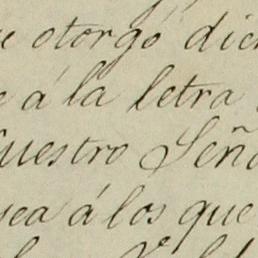 e otorgó dich
e á la letra
Nuestro Seño
sea á los que